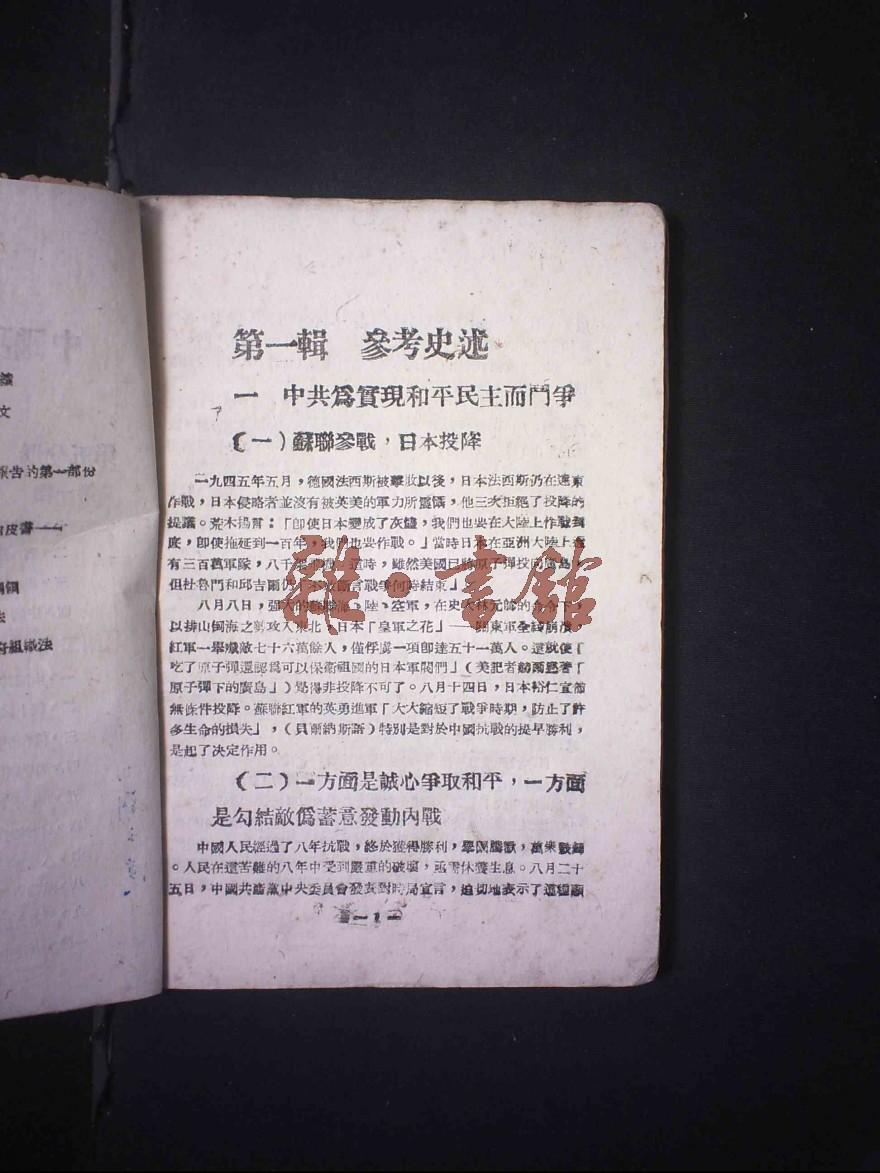 讀
文
報告的第一部份
白皮書——
綱領
法
府組織法
第一輯 參考史述
一 中共爲實現和平民主而鬥爭
(一)蘇聯參戰,日本投降
一九四五年五月,德國法西斯被擊敗以後,日本法西斯仍在遠東
作戰,日本侵略者並沒有被英美的軍力所震懾,他三次拒絕了投降的
提議。荒木揚言:「即使日本變成了灰燼,我們也要在大陸上作戰到
底,即使拖延到一百年,我們也要作戰。」當時日本在亞洲大陸上還
有三百萬軍隊,八千架飛機。這時,雖然美國已將原子彈投向廣島,
但杜魯門和邱吉爾仍「不敢斷言戰爭何時結束」。
八月八日,強大的蘇聯海、陸、空軍,在史大林元帥的命令下,
以排山倒海之勢攻入東北,日本「皇軍之花」——關東軍全綫崩潰,
紅軍一舉殲敵七十六萬餘人,僅俘虜一項即達五十一萬人。這就使「
吃了原子彈還認爲可以保衛祖國的日本軍閥們」(美記者 著「
原子彈下的廣島」)覺得非投降不可了。八月十四日,日本裕仁宣佈
無條件投降。蘇聯紅軍的英勇進軍「大大縮短了戰爭時期,防止了許
多生命的損失」,(貝爾納斯語)特別是對於中國抗戰的提早勝利,
是起了決定作用。
(二)一方面是誠心爭取和平,一方面
是勾結敵僞蓄意發動內戰
中國人民經過了八年抗戰,終於獲得勝利,舉國騰歡,萬衆歡歸
。人民在這苦難的八年中受到嚴重的破壞,亟需休養生息。八月二十
五日,中國共產黨中央委員會發表對時局宣言,迫切地表示了這種願
—1—
雜·書館